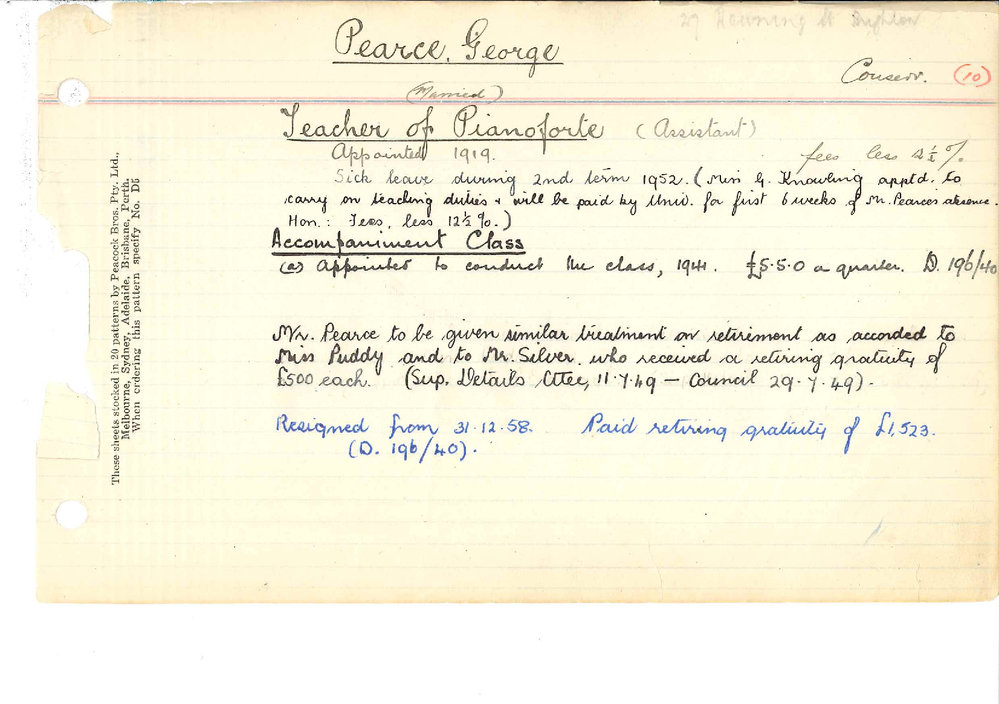 27 Downing St Brighton
Pearce, George
Conserv. (10)
(Married)
Teacher of Pianoforte (Assistant)
Appointed 1919. fees less 12½%.
Sick leave during 2nd term 1952. (Miss G. Knowling apptd. to
carry on teaching duties & will be paid by Univ. for first 6 weeks of Mr. Pearce's absence.
Hon.: Fees, less 12½%.)
Accompaniment Class
(a) Appointed to conduct the class, 1941. £5.5.0 a quarter. D. 196/40
Mr. Pearce to be given similar treatment on retirement as accorded to
Miss Puddy and to Mr. Silver who received a retiring gratuity of
£500 each. (Sup. Details Cttee, 11.7.49 — Council 29.7.49).
Resigned from 31.12.58. Paid retiring gratuity of £1,523.
(D. 196/40).
These sheets stocked in 20 patterns by Peacock Bros. Pty. Ltd.,
Melbourne, Sydney, Adelaide, Brisbane, Perth.
When ordering this pattern specify No. D5